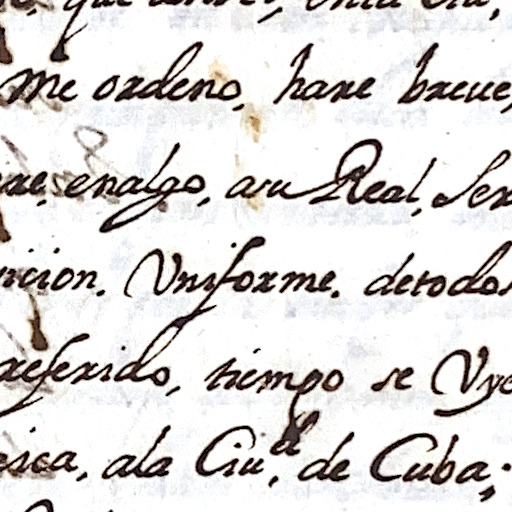 me ordeno, hare breue,
enalgo, asu Real, Ser
Vniforme. detodos
referido, tiempo se Vye
ala Ciu.d de Cuba,